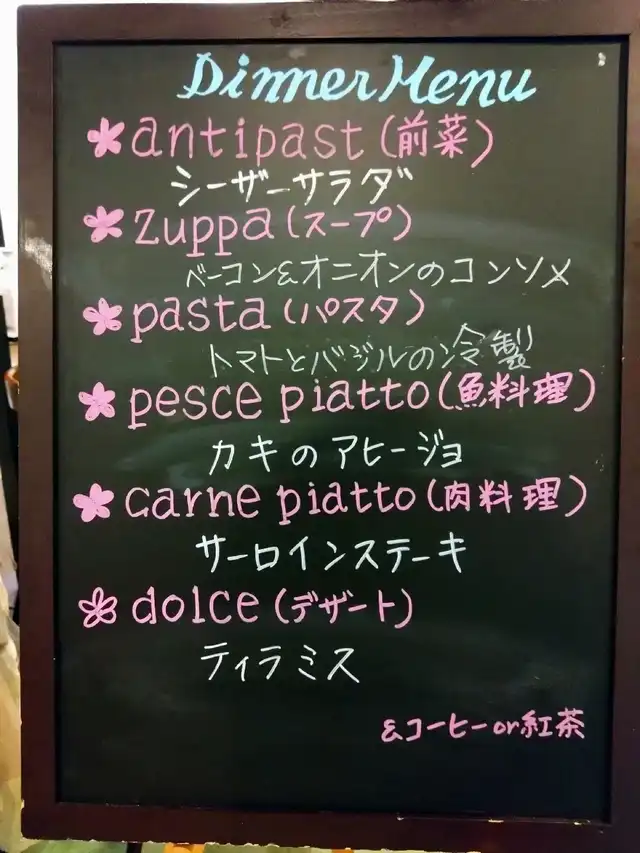 Dinner Menu
antipast (前菜)
シーザーサラダ
zuppa (スープ)
ベーコン&オニオンのコンソメ
pasta (パスタ)
トマトとバジルの冷製
pesce piatto (魚料理)
カキのアヒージョ
carne piatto (肉料理)
サーロインステーキ
dolce (デザート)
ティラミス
&コーヒーor紅茶